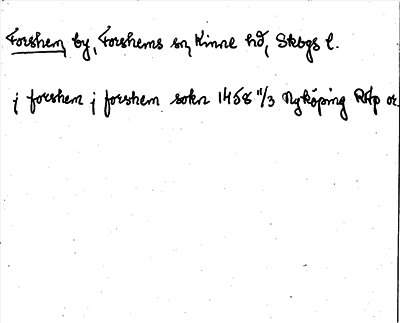 Forshem by, Forshems sn, Kinne hd, Skbgs l.
j forshem j forshem sokn 1458 11/3 Nyköping RAp or.